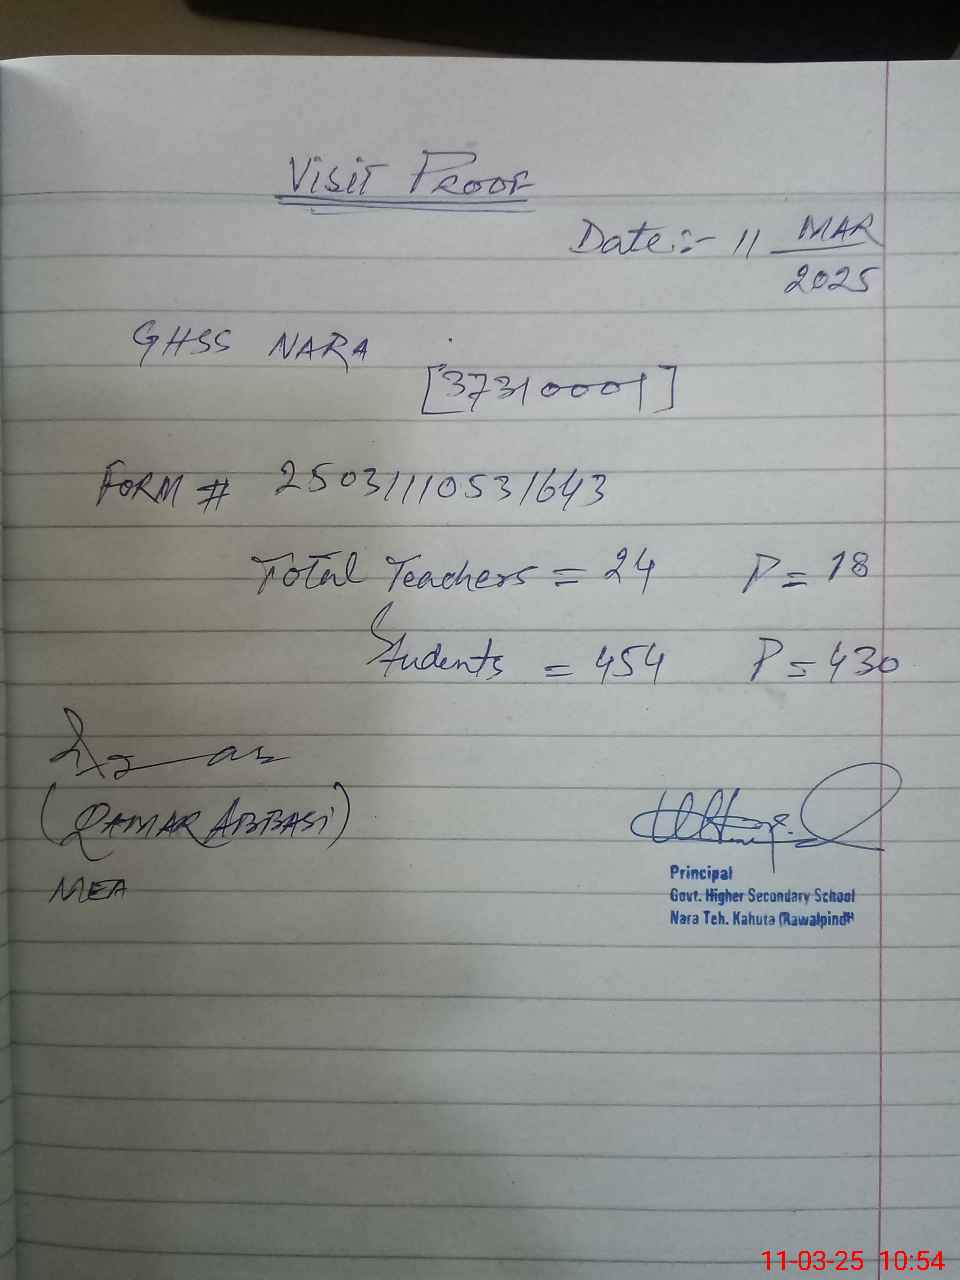 Visit Proof
Date:- 11 MAR
2025
GHSS NARA
[37310001]
FORM # 25031110531643
Total Teachers = 24 P = 18
Students = 454 P = 430
(QAMAR ABBASI)
MEA
Principal
Govt. Higher Secondary School
Nara Teh. Kahuta (Rawalpindi)
11-03-25 10:54